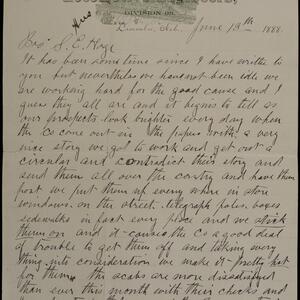 DIVISION 98.
Lincoln, Neb. June 13th 1888.
Bro S. E. Hoge
It has been some time since I have written to
you but nevertheless we have not been idle we
are working hard for the good cause and I
guess they all are and it begins to tell as
our prospects look brighter every day when
the Co come out in the papers with a very
nice story we got to work and get out a
circular and contradict their story and
send them all over the contry and have them
post we put them up every where in store
windows. on the street. telegraph poles. boxes
sidewalks in fact every place and we stick
them on and it causes the Co a good deal
of trouble to get them off and taking every
thing into consideration we make it pretty hot
for them. the scabs are more dissatisfied
than ever this month with their checks and